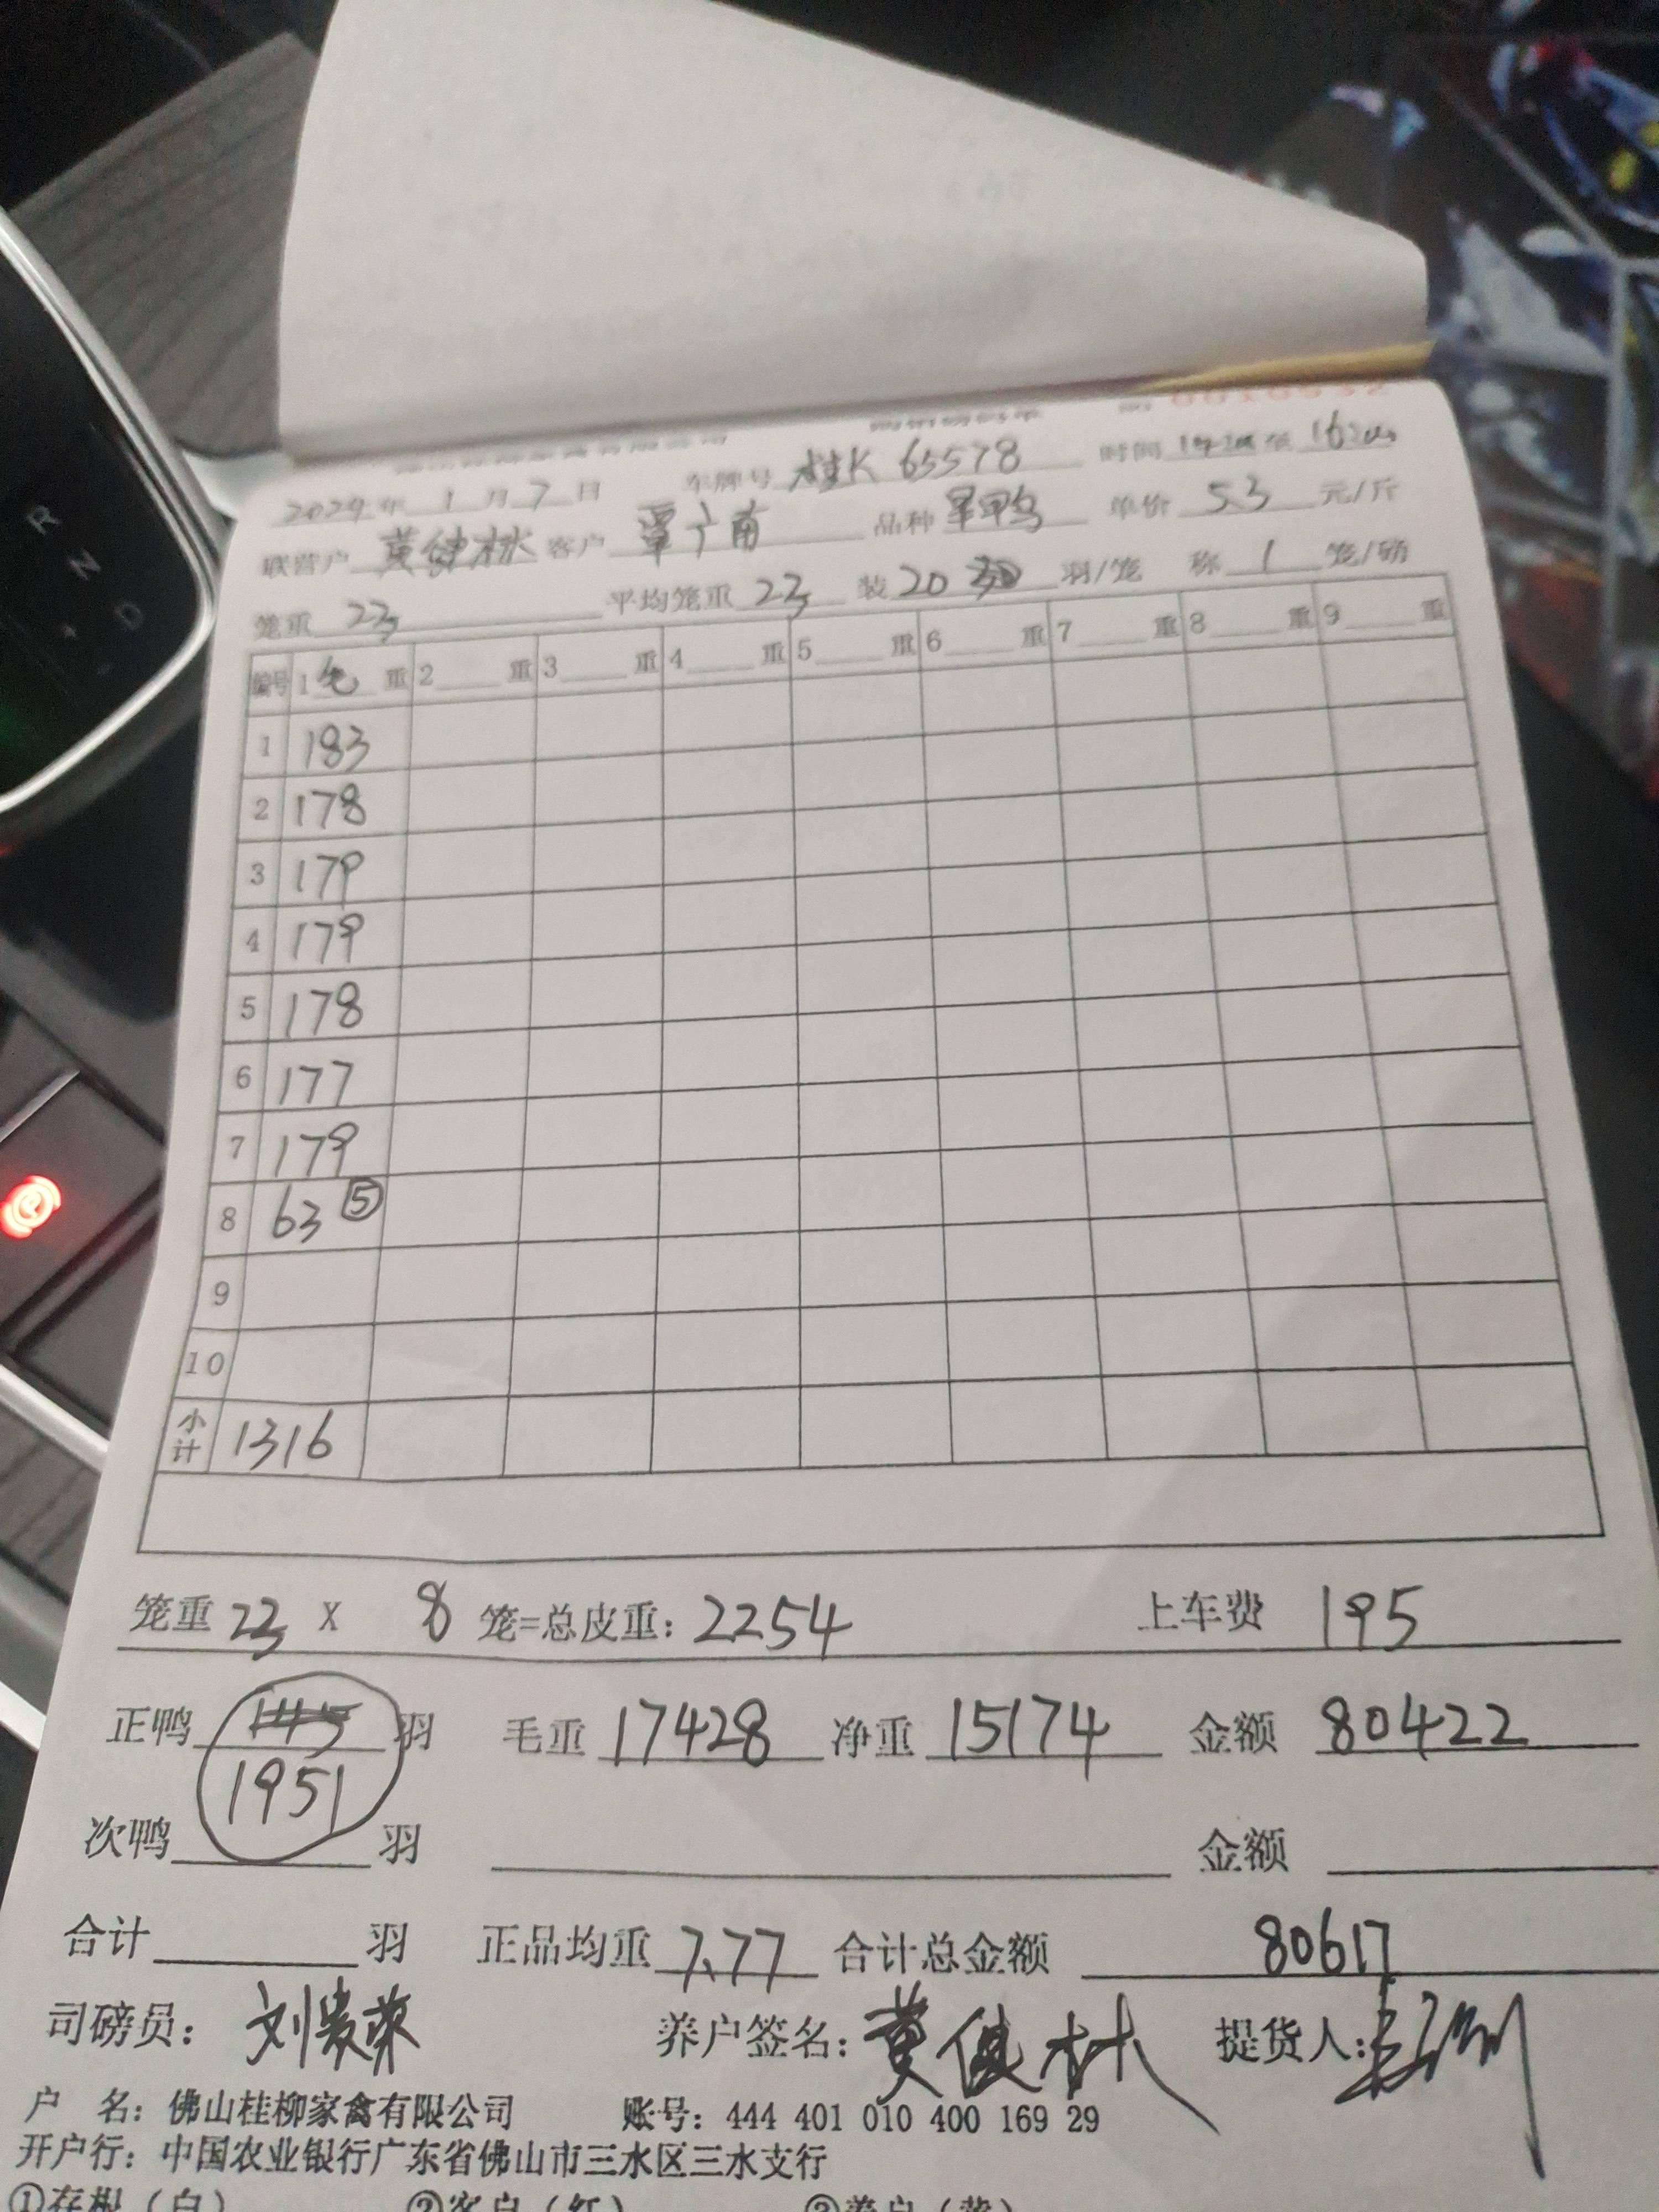 2024年 1月7日 车牌号 桂K 65578 时间 至
联营户 黄健林 客户 覃广南 品种 单价 5.3 元/斤
笼重 23 平均笼重 23 装 20 羽/笼 称 1 笼/磅
编号 1 重 2 重 3 重 4 重 5 重 6 重 7 重 8 重 9 重
1 183
2 178
3 179
4 179
5 178
6 177
7 179
8 63 ⑤
9
10
小计 1316
笼重 23 X 8 笼=总皮重: 2254 上车费 195
正鸭 145 羽 毛重 17428 净重 15174 金额 80422
1951
次鸭 羽 金额
合计 羽 正品均重 7.77 合计总金额 80617
司磅员: 刘贵荣 养户签名: 黄健林 提货人:
户 名: 佛山桂柳家禽有限公司 账号: 444 401 010 400 169 29
开户行: 中国农业银行广东省佛山市三水区三水支行
①存根(白) ②客户(红) ③养户(黄)